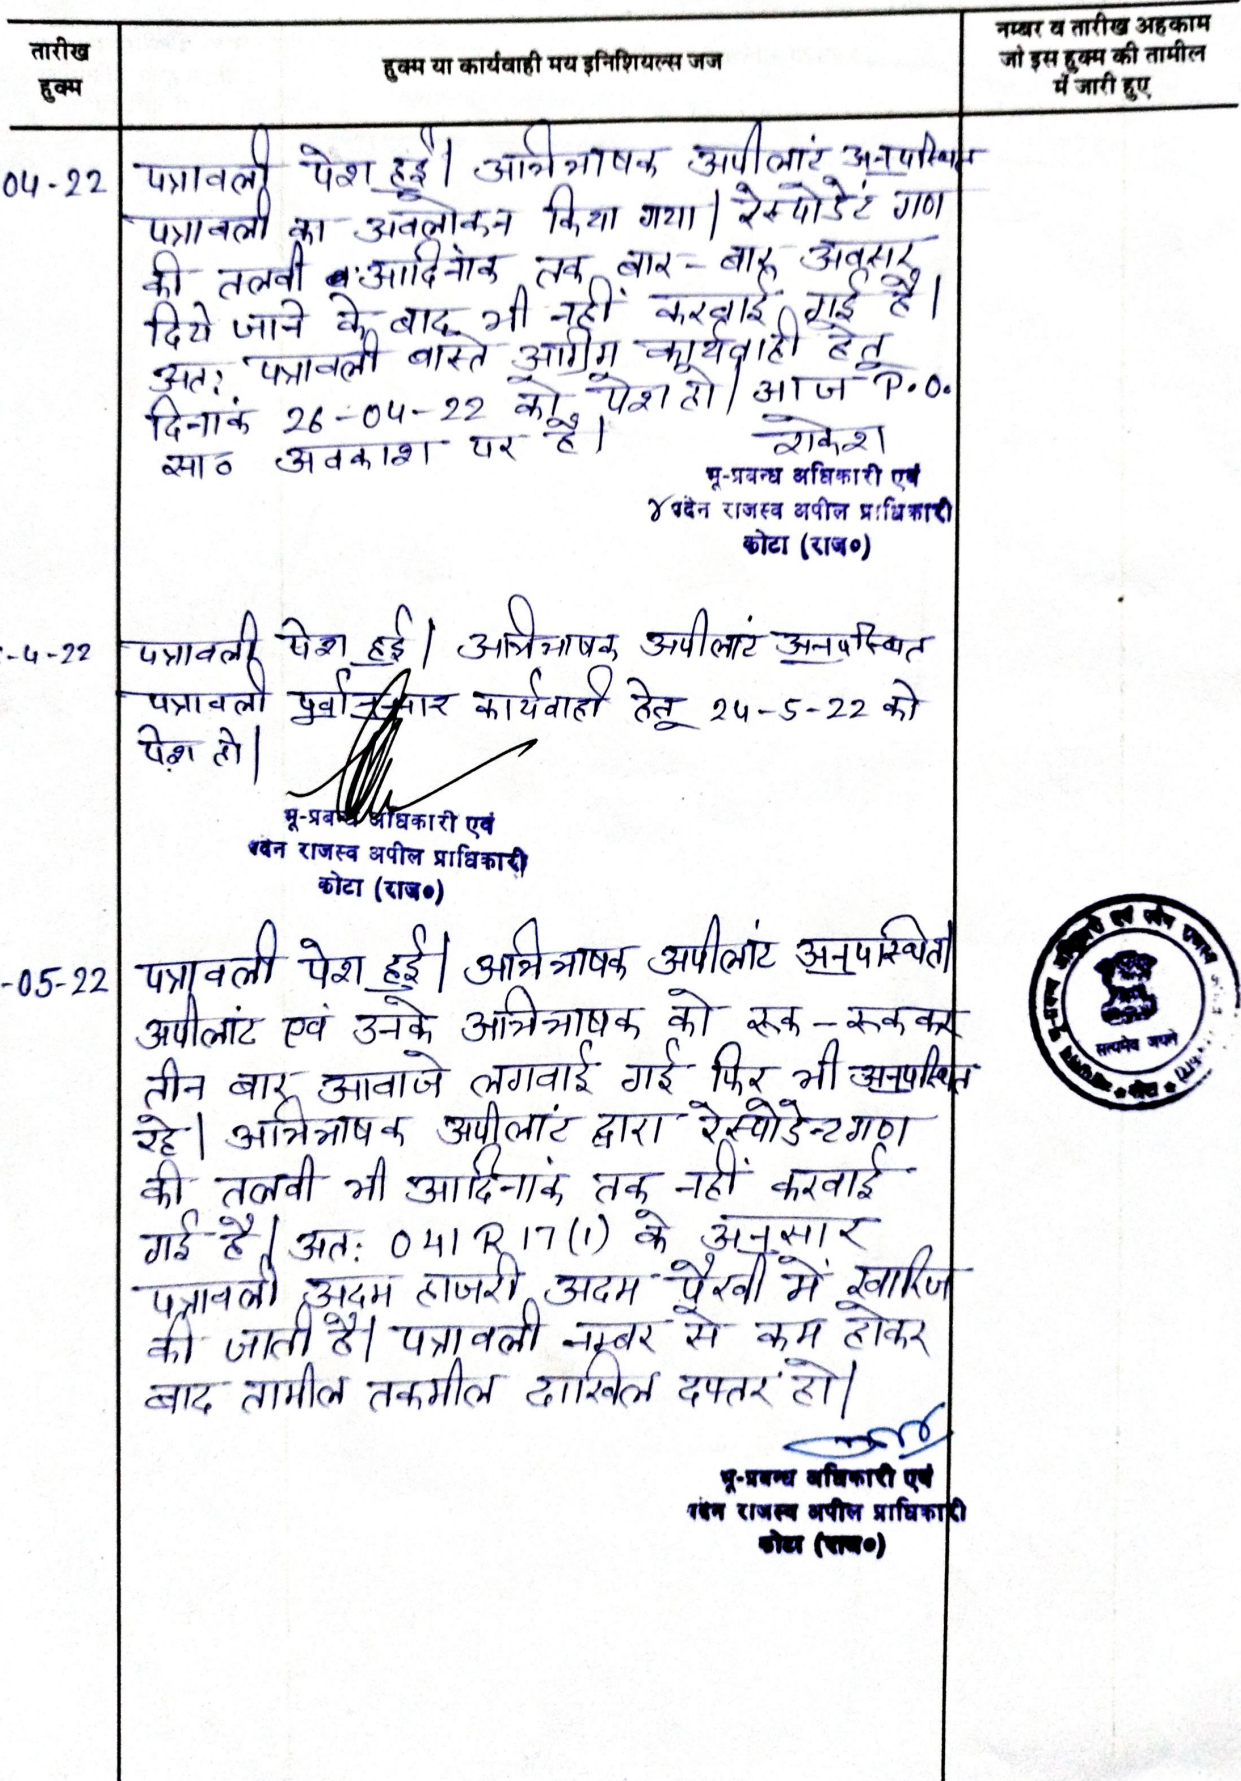 तारीख
हुक्म
हुक्म या कार्यवाही मय इनिशियल्स जज
नम्बर व तारीख अहकाम
जो इस हुक्म की तामील
में जारी हुए
04-22 पत्रावली पेश हुई। अभिभाषक अपीलांट अनुपस्थित
पत्रावली का अवलोकन किया गया। रेस्पोडेंट गण
की तलवी आदिनांक तक बार-बार अवसर
दिये जाने के बाद भी नहीं करवाई गई है।
अतः पत्रावली वास्ते आगेम कार्यवाही हेतु
दिनांक 26-04-22 को पेश हो। आज P.O.
सा० अवकाश पर है।
राकेश
भू-प्रबन्ध अधिकारी एवं
पदेन राजस्व अपील प्राधिकारी
कोटा (राज०)
-4-22 पत्रावली पेश हुई। अभिभाषक अपीलांट अनुपस्थित
पत्रावली पुर्वानुसार कार्यवाही हेतु 24-5-22 को
पेश हो।
भू-प्रबन्ध अधिकारी एवं
पदेन राजस्व अपील प्राधिकारी
कोटा (राज०)
-05-22 पत्रावली पेश हुई। अभिभाषक अपीलांट अनुपस्थित।
अपीलांट एवं उनके अभिभाषक को रूक-रूककर
तीन बार आवाजे लगवाई गई फिर भी अनुपस्थित
रहे। अभिभाषक अपीलांट द्वारा रेस्पोडेन्टगण
की तलवी भी आदिनांक तक नहीं करवाई
गई है। अतः 041 R 17(1) के अनुसार
पत्रावली अदम हाजरी अदम पैरवी में खारिज
की जाती है। पत्रावली नम्बर से कम होकर
बाद तामील तकमील दाखिल दफ्तर हो।
भू-प्रबन्ध अधिकारी एवं
पदेन राजस्व अपील प्राधिकारी
कोटा (राज०)
सत्यमेव जयते